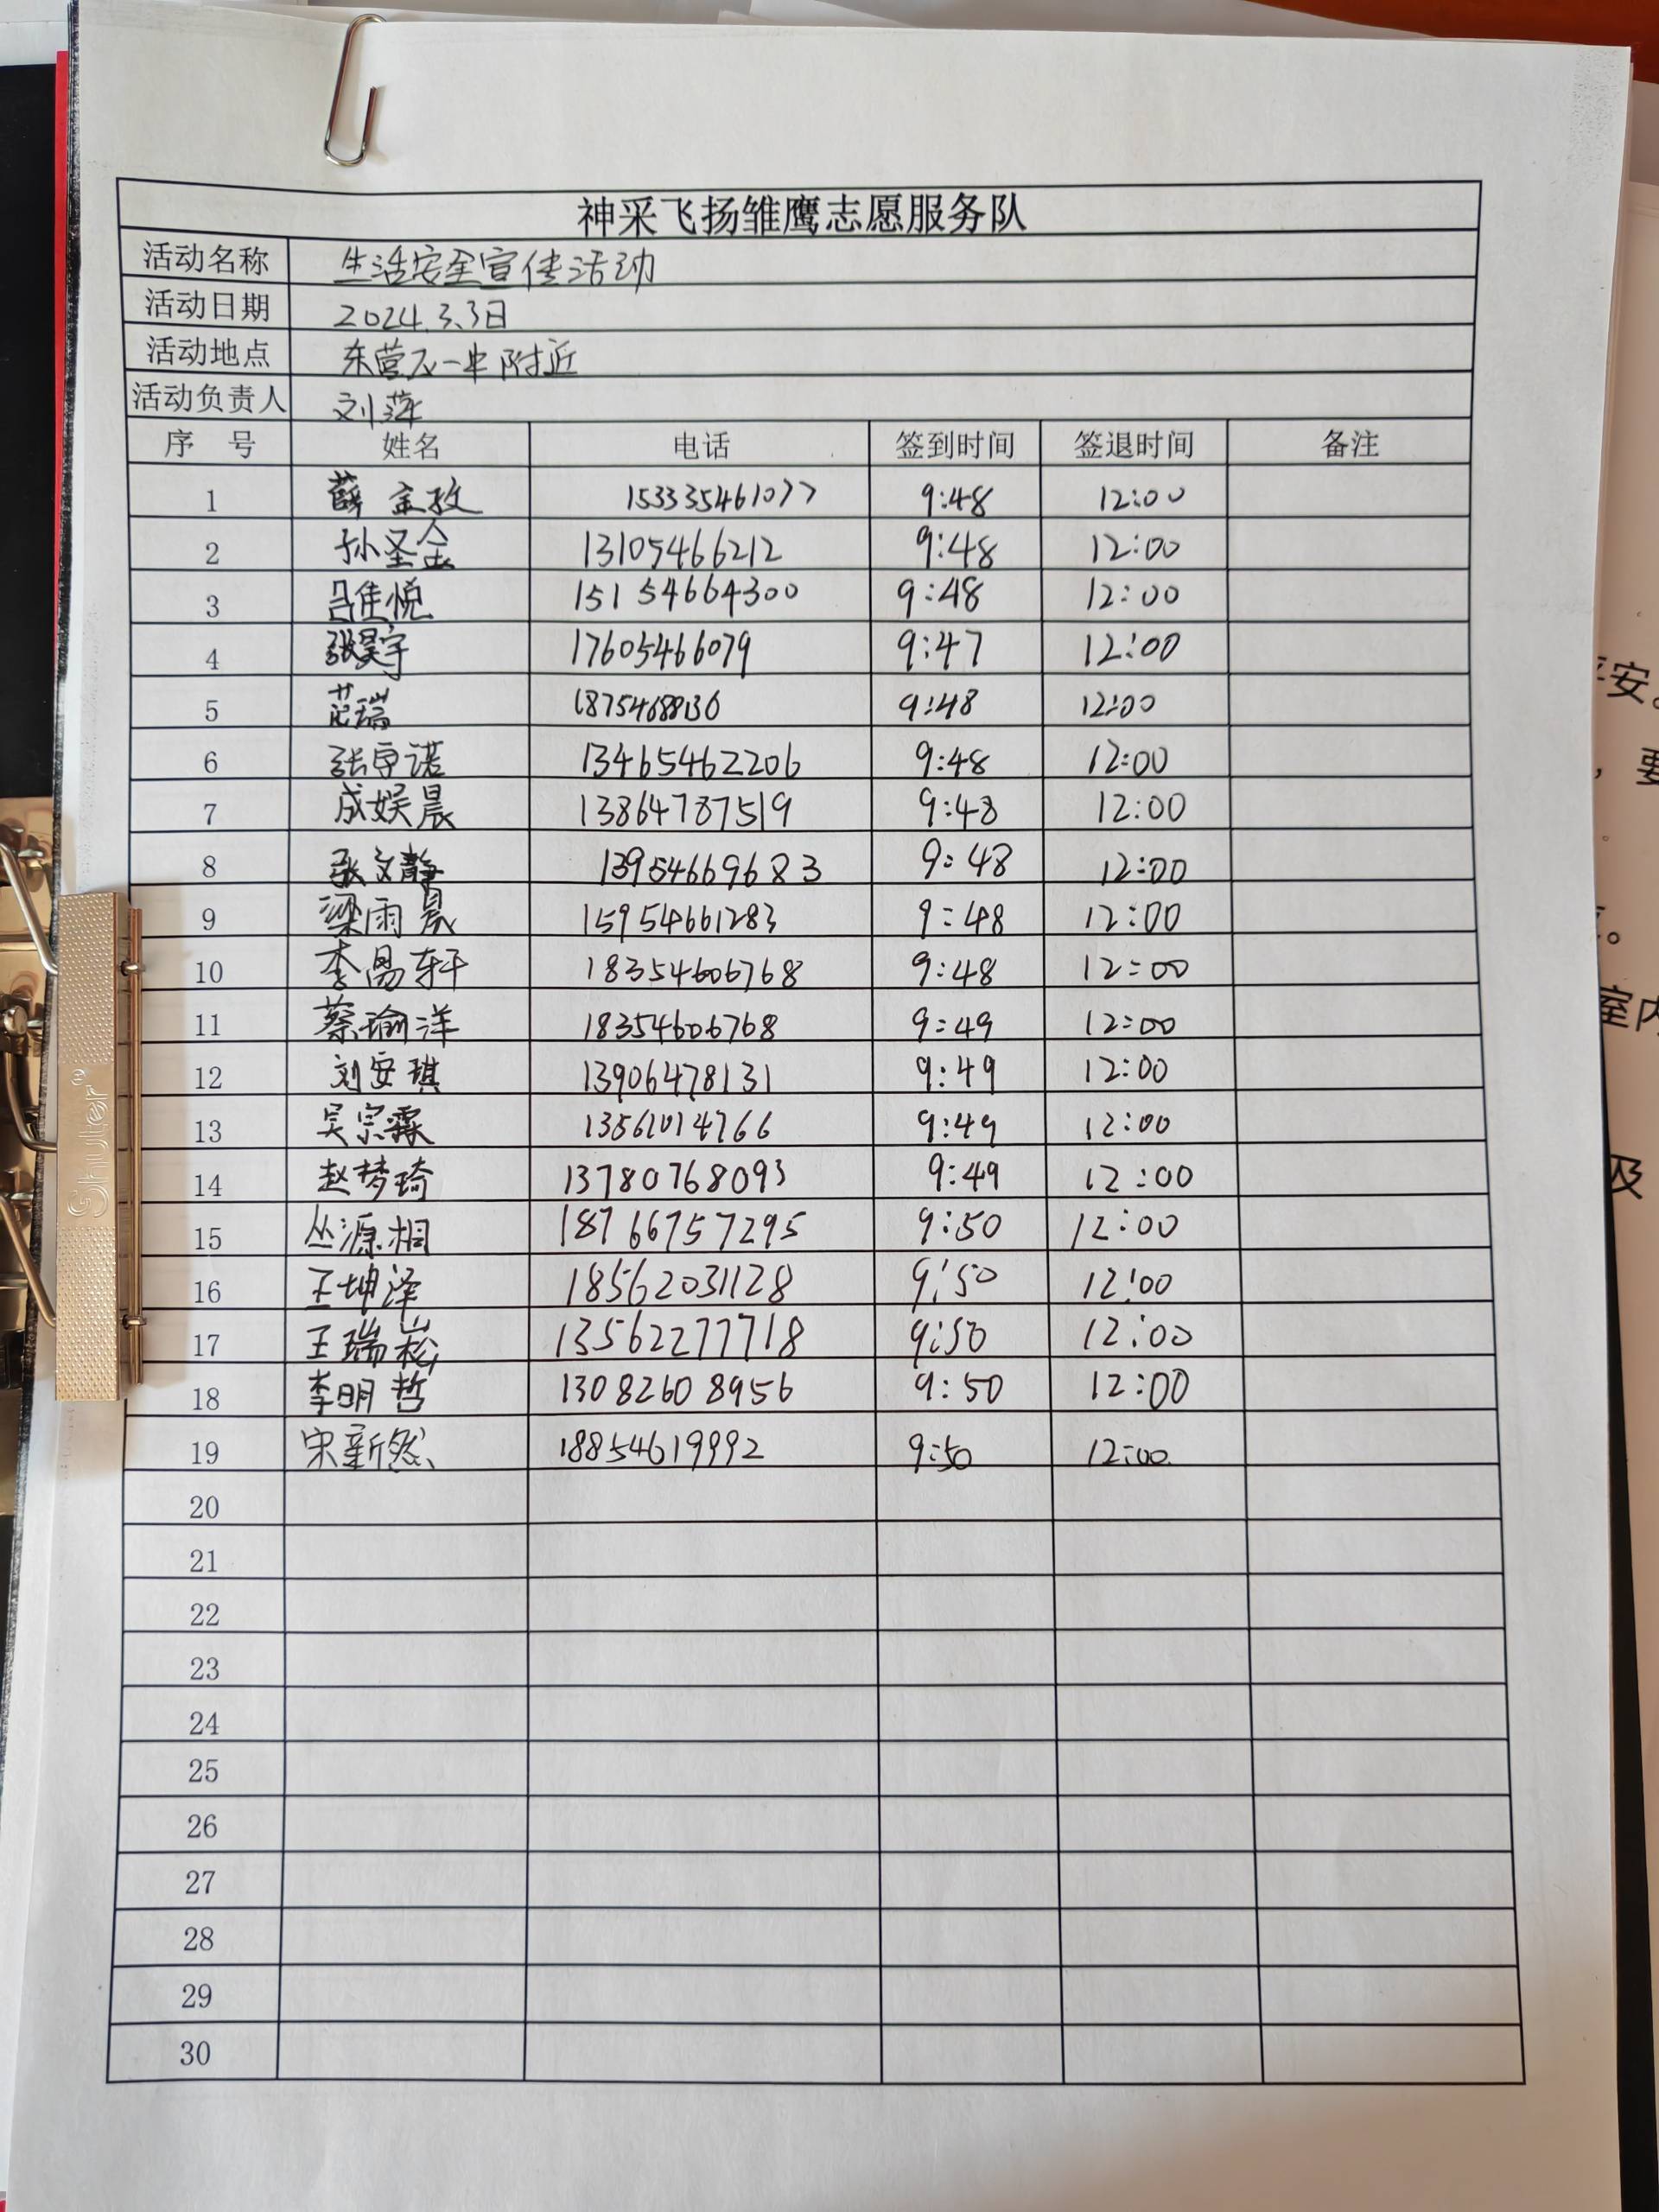 神采飞扬雏鹰志愿服务队
活动名称 生活安全宣传活动
活动日期 2024.3.3日
活动地点 东营区一中附近
活动负责人 刘萍
序 号 姓名 电话 签到时间 签退时间 备注
1 薛 9:48 12:00
2 孙圣 13105466212 9:48 12:00
3 吕佳悦 15154664300 9:48 12:00
4 张昊宇 17605466079 9:47 12:00
5 范瑞 9:48 12:00
6 张卓诺 13465462206 9:48 12:00
7 成娱晨 13864787519 9:48 12:00
8 张文静 13954669683 9:48 12:00
9 梁雨晨 15954661283 9:48 12:00
10 李昜轩 18354606768 9:48 12:00
11 蔡瑜洋 18354606768 9:49 12:00
12 刘安琪 13906478131 9:49 12:00
13 吴宗霖 13561014766 9:49 12:00
14 赵梦琦 13780768093 9:49 12:00
15 丛源桐 18766757295 9:50 12:00
16 王坤泽 18562031128 9:50 12:00
17 王瑞崧 13562277718 9:50 12:00
18 李明哲 13082608956 9:50 12:00
19 宋新然 18854619992 9:50 12:00
20
21
22
23
24
25
26
27
28
29
30
Shuter
平安。
，要
。
室内
及